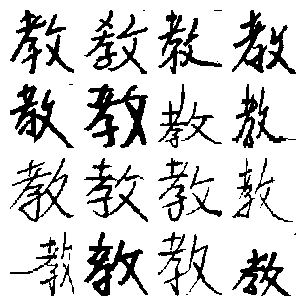 教教教教
教教教教
教教教教
教教教教